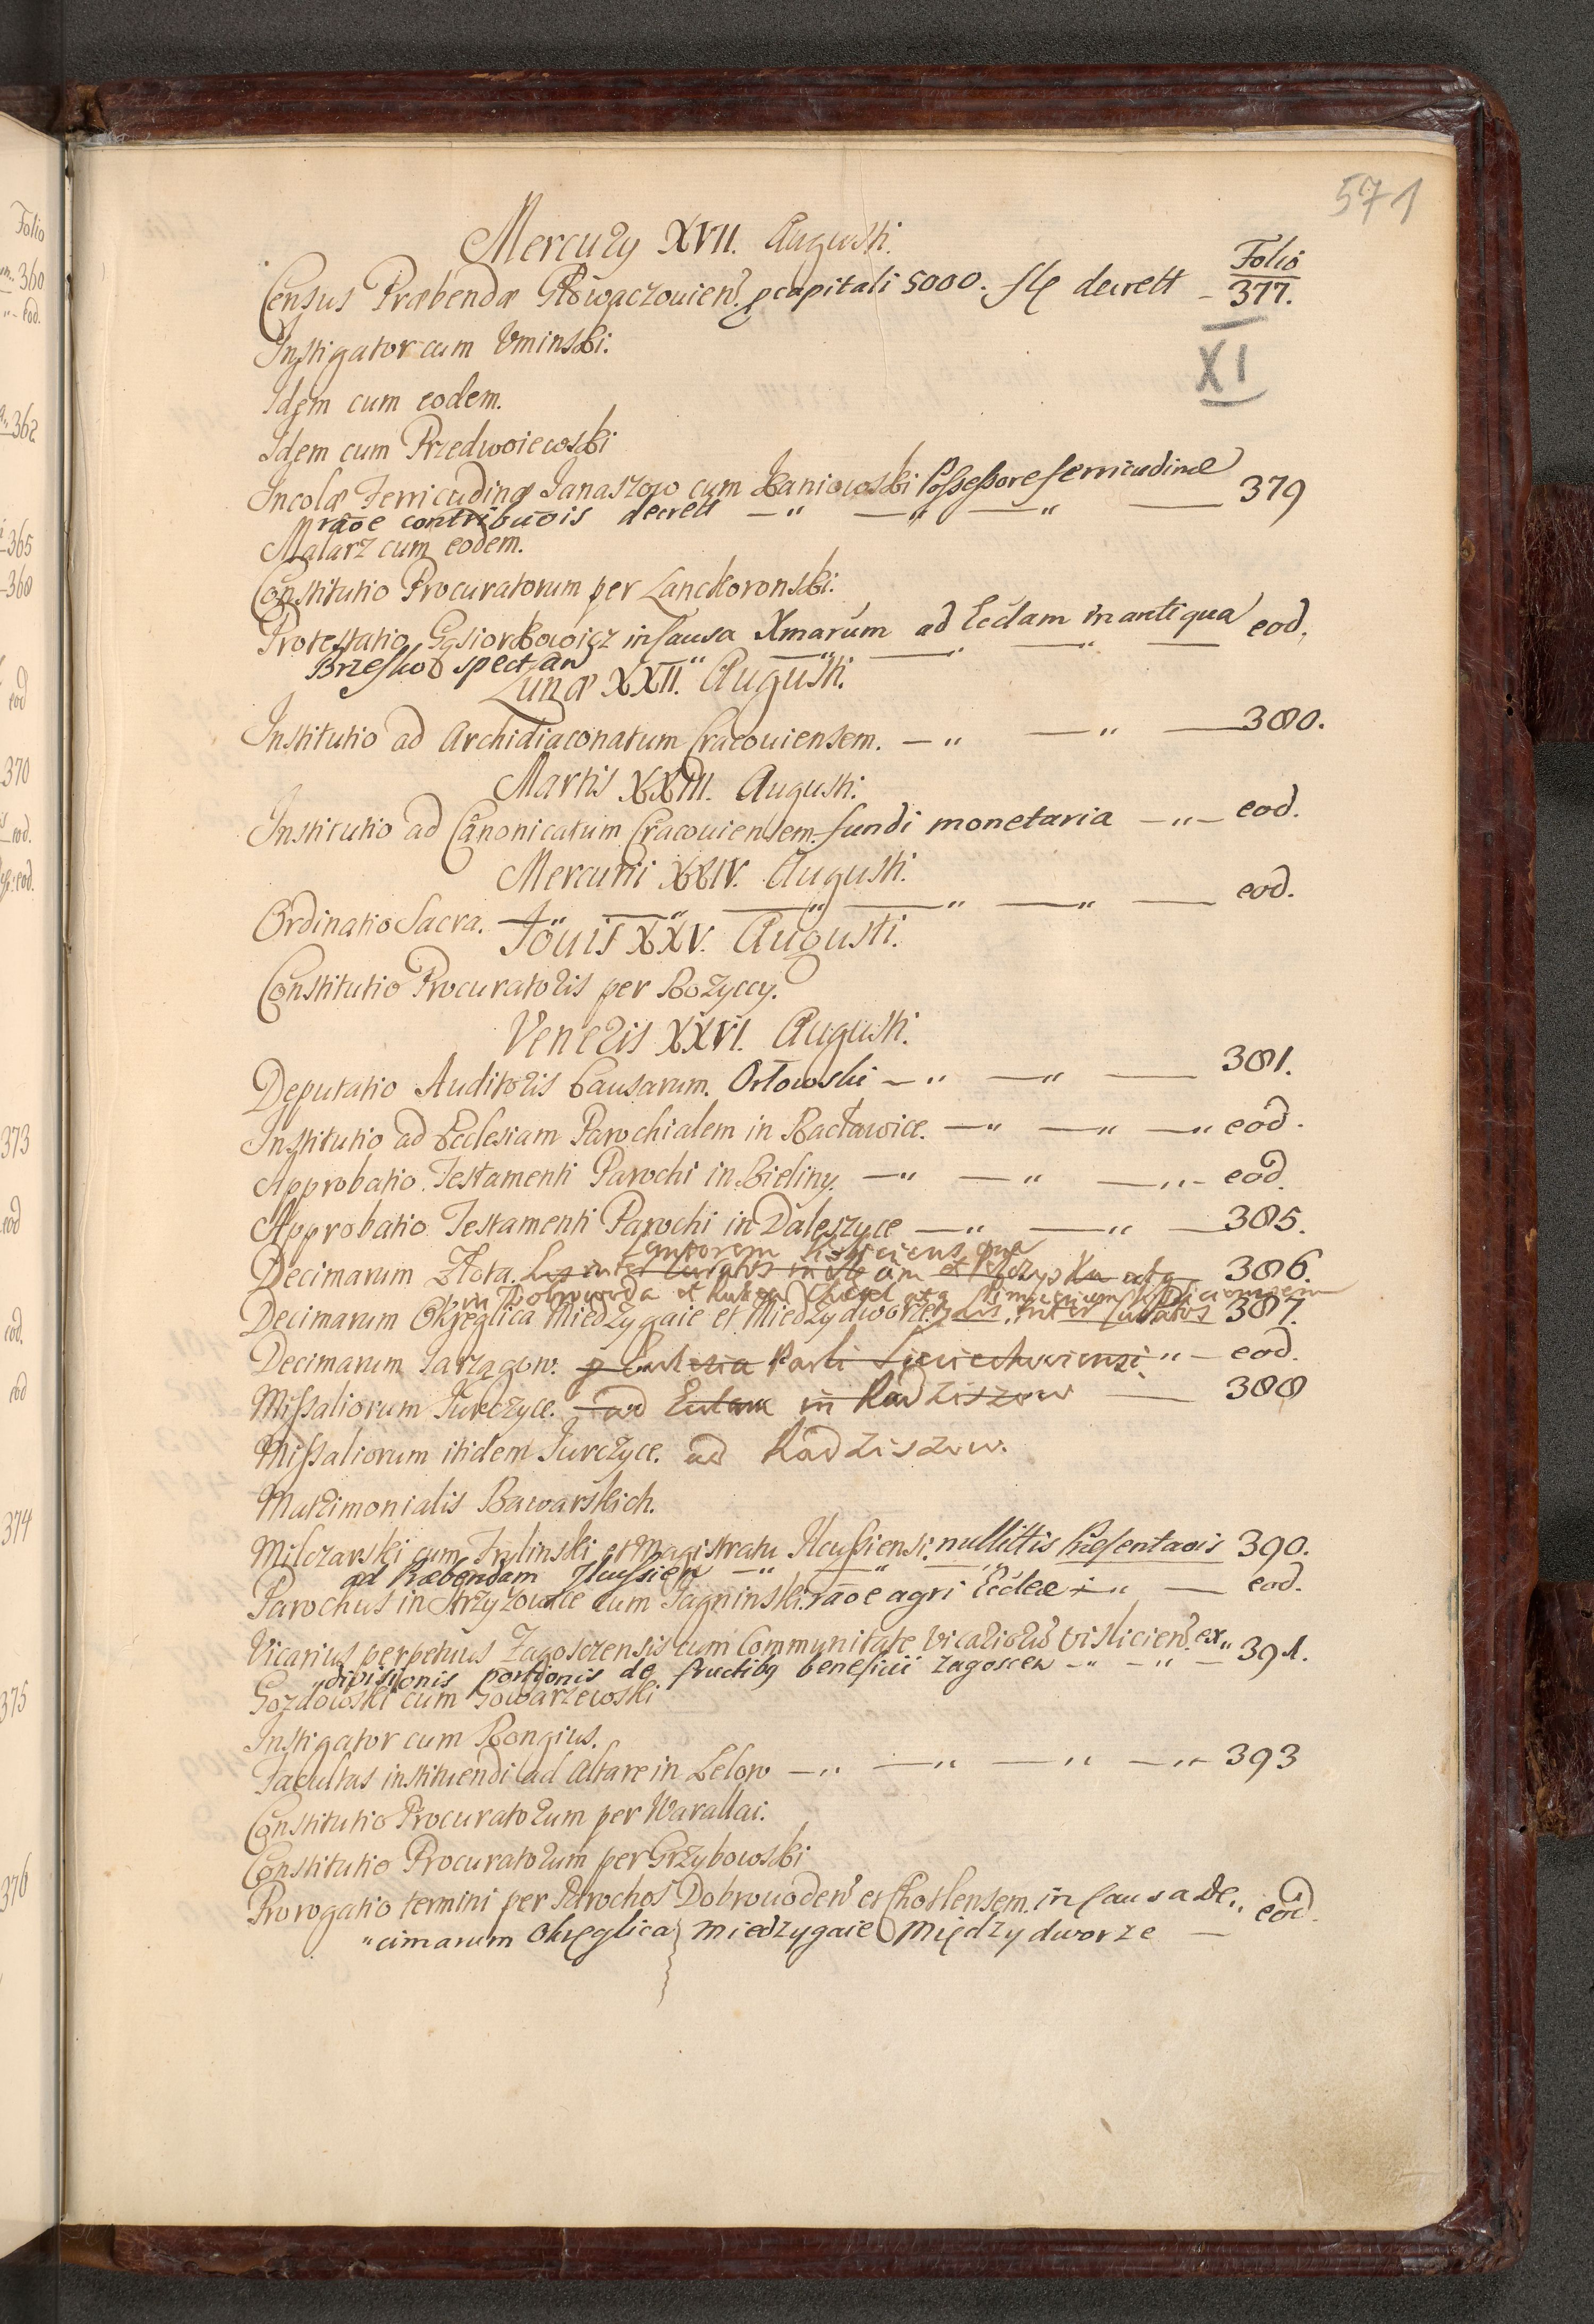 571
Mercury XVII. Augusti.
Folio
Census Præbendæ Głowaczouien. p capitali 5000. fle decrett – 377.
Instigator cum Uminski.
XI
Idem cum eodem.
Idem cum Przedwoiewski
Incolæ Ferricudinæ Janaszow cum Kaniowski Possessore ferricudinæ
rãoe contribuõis decrett —„ —„ —„ — 379
Malarz cum eodem.
Constitutio Procuratorum per Lanckoronski.
Protestatio Gąsiorkowicz in Causa Xmarum ad Eccłam in antiqua eod.
Brzesko spectan —„ —„ — —„ —
Lunæ XXII. Augusti.
Institutio ad Archidiaconatum Cracouiensem. —„ —„ — 380.
Martis XXIII. Augusti.
Institutio ad Canonicatum Cracouiensem fundi monetaria —„— eod.
Mercurii XXIV. Augusti.
Ordinatio Sacra. —„ —„ —„ —„ —„ — eod.
Jouis XXV. Augusti.
Constitutio Procuratoris per Rozyccy.
Veneris XXVI. Augusti.
Deputatio Auditoris Causarum. Orłowski —„ —„ — 381.
Institutio ad Ecclesiam Parochialem in Racławice. —„ —„ —„ eod.
Approbatio Testamenti Parochi in Bieliny. —„ —„ —„– eod.
Approbatio Testamenti Parochi in Daleszyce —„ —„ — 385.
Cantorem
Decimarum Złota. Lis inter Curatos in 386.
in et
Decimarum Okręglica Miedzygaie et Miedzydworze. Lis inter Curatos 387.
Decimarum Jarzągow. p — eod.
Missaliorum Jurczyce. ad Eccłam in Radziszow — 388
Missaliorum itidem Jurczyce. ad Radziszow.
Matrimonialis Bawarskich.
Milczarski cum Trylinski et Magistratu Ilcussiensi. nullittis Præsentaõis 390.
ad Præbendam Ilcussien —„ —„ —„
Parochus in Strzyzowice cum Jagninski. rãoe agri Eccłæ —„ — eod.
Vicarius perpetuus Zagosczensis cum Communitate Vicariorũ Vislicien. ex„ 391.
„divisionis portionis de fructibq beneficii Zagoscen —„ —„ —
Gozdowski cum Towarzewski
Instigator cum Rongius.
Facultas instituendi ad Altare in Lelow —„ —„ —„ —„– 393
Constitutio Procuratorum per Warallai.
Constitutio Procuratorum per Grzybowski
Prorogatio termini per Parochos Dobrouoden et Chotlensem. in causa De„ eod.
„cimarum Okręglica Miedzygaie Między dworze —